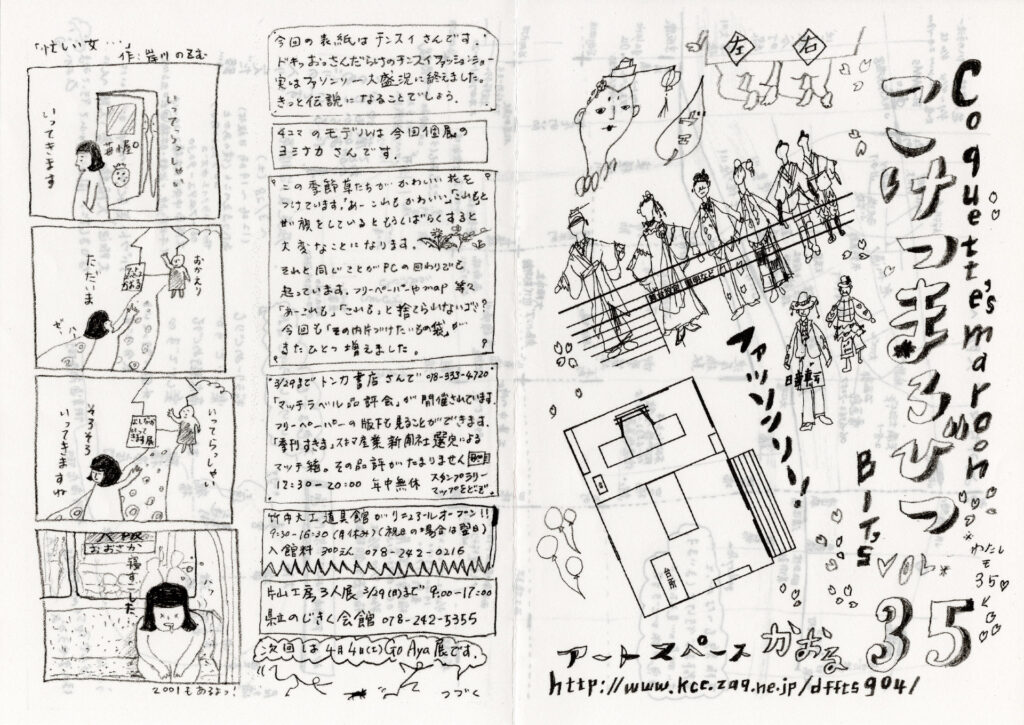 「忙しい女…」
作:岸川のるむ
いってらっしゃい
いってきます
おかえり
ただいま
ゼ、ハ、
いってらっしゃい
そろそろ
いってきますね
大阪
おおさか
寝すごした
2001もあるよっ!
今回の表紙はテンスイさんです。
ドキッおっさんだらけのテンスイファッションショー
実はファソンソリー大盛況に終えました。
きっと伝説になることでしょう。
4コマのモデルは今回個展の
ヨミナカさんです。
この季節草たちがかわいい花を
つけています。"あーこれもかわいい""これもと
甘い顔をしているともうしばらくすると
大変なことになります。
それと同じことがPCの回わりでも
起っています。フリーペーパーやmap 等々
「あーこれも」「これも」と捨てられないゴミ?
今回も「その内片づけたいもの袋」が
またひとつ増えました。
3/29までトンカ書店さんで 078-333-4720
「マッチラベル品評会」が開催されています。
フリーペーパーの版下も見ることができます。
「季刊すきま」ストマ産業新聞社選定による
マッチ箱。その品評がたまりません
12:30-20:00 年中無休 スタンプラリー
マップをどうぞ
竹中大工道具館がリニューアルオープン!!
9:30-16:30(月休み)(祝日の場合は翌日)
入館料 300えん 078-242-0216
片山工房3人展 3/29(日)まで 9:00-17:00
県立のじぎく会館 078-242-5355
次回は4月4日(土) Go Aya 展です。
つづく
左
右
Coquette's maroon
こけっつまろんびーつ
Bits
Vol.
35
わたし
も
35
ファッソンソリー!
台所
アートスペースかおる
http://www.kcc.zaq.ne.jp/dffts904/